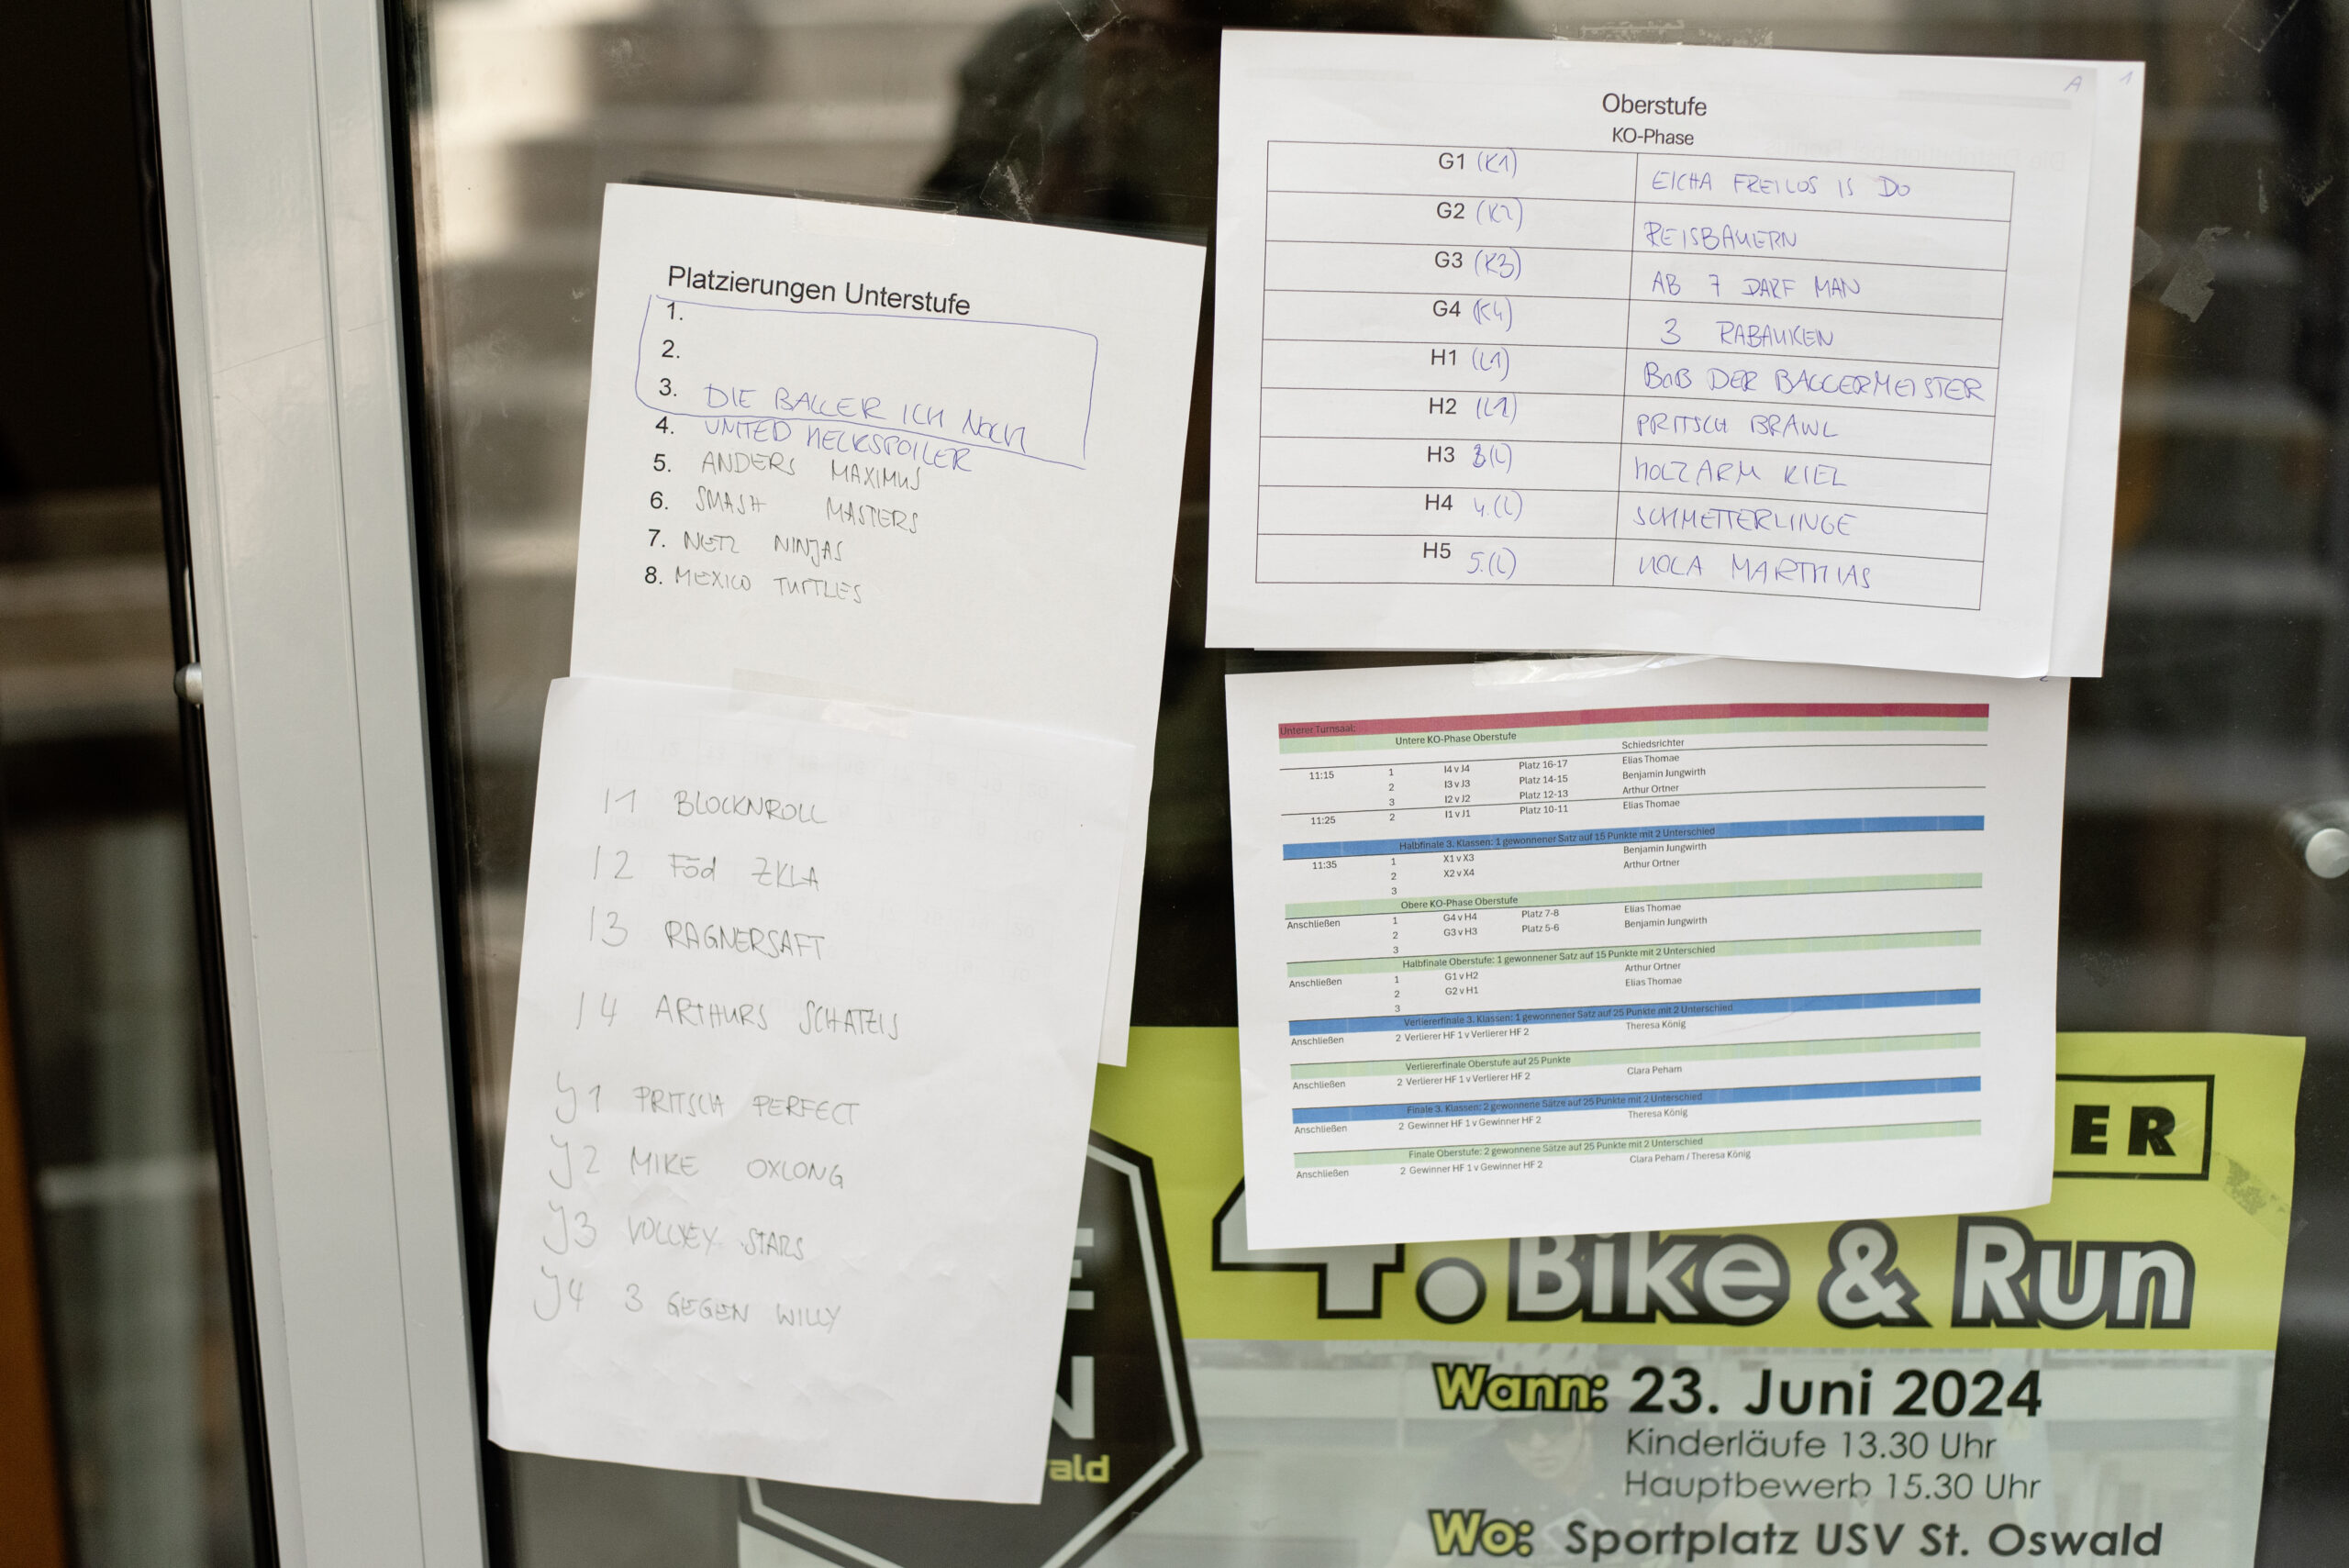 Platzierungen Unterstufe
1.
2.
3. DIE BALLER ICH NOCH
4. UNITED HECKSPOILER
5. ANDERS MAXIMUS
6. SMASH MASTERS
7. NETZ NINJAS
8. MEXICO TURTLES
I1 BLOCKNROLL
I2 Föd ZKLA
I3 RAGNERSAFT
I4 ARTHURS SCHATZIS
J1 PRITSCH PERFECT
J2 MIKE OXLONG
J3 VOLLEY STARS
J4 3 GEGEN WILLY
A 1
Oberstufe
KO-Phase
G1 (K1) EICHA FREILOS IS DO
G2 (K2) REISBAUERN
G3 (K3) AB 7 DARF MAN
G4 (K4) 3 RABAUKEN
H1 (L1) BOB DER BALLERMEISTER
H2 (L2) PRITSCH BRAWL
H3 3(L) HOLZARM KIEL
H4 4.(L) SCHMETTERLINGE
H5 5.(L) HOLA MARTHIAS
2
Unterer Turnsaal:
Untere KO-Phase Oberstufe
Schiedsrichter
11:15 1 I4 v J4 Platz 16-17 Elias Thomae
2 I3 v J3 Platz 14-15 Benjamin Jungwirth
3 I2 v J2 Platz 12-13 Arthur Ortner
11:25 2 I1 v J1 Platz 10-11 Elias Thomae
Halbfinale 3. Klassen: 1 gewonnener Satz auf 15 Punkte mit 2 Unterschied
11:35 1 X1 v X3 Benjamin Jungwirth
2 X2 v X4 Arthur Ortner
3
Obere KO-Phase Oberstufe
Anschließen 1 G4 v H4 Platz 7-8 Elias Thomae
2 G3 v H3 Platz 5-6 Benjamin Jungwirth
3
Halbfinale Oberstufe: 1 gewonnener Satz auf 15 Punkte mit 2 Unterschied
Anschließen 1 G1 v H2 Arthur Ortner
2 G2 v H1 Elias Thomae
3
Verliererfinale 3. Klassen: 1 gewonnener Satz auf 25 Punkte mit 2 Unterschied
Anschließen 2 Verlierer HF 1 v Verlierer HF 2 Theresa König
Verliererfinale Oberstufe auf 25 Punkte
Anschließen 2 Verlierer HF 1 v Verlierer HF 2 Clara Peham
Finale 3. Klassen: 2 gewonnene Sätze auf 25 Punkte mit 2 Unterschied
Anschließen 2 Gewinner HF 1 v Gewinner HF 2 Theresa König
Finale Oberstufe: 2 gewonnene Sätze auf 25 Punkte mit 2 Unterschied
Anschließen 2 Gewinner HF 1 v Gewinner HF 2 Clara Peham / Theresa König
ER
4. Bike & Run
Wann: 23. Juni 2024
Kinderläufe 13.30 Uhr
Hauptbewerb 15.30 Uhr
Wo: Sportplatz USV St. Oswald
E
N
ald